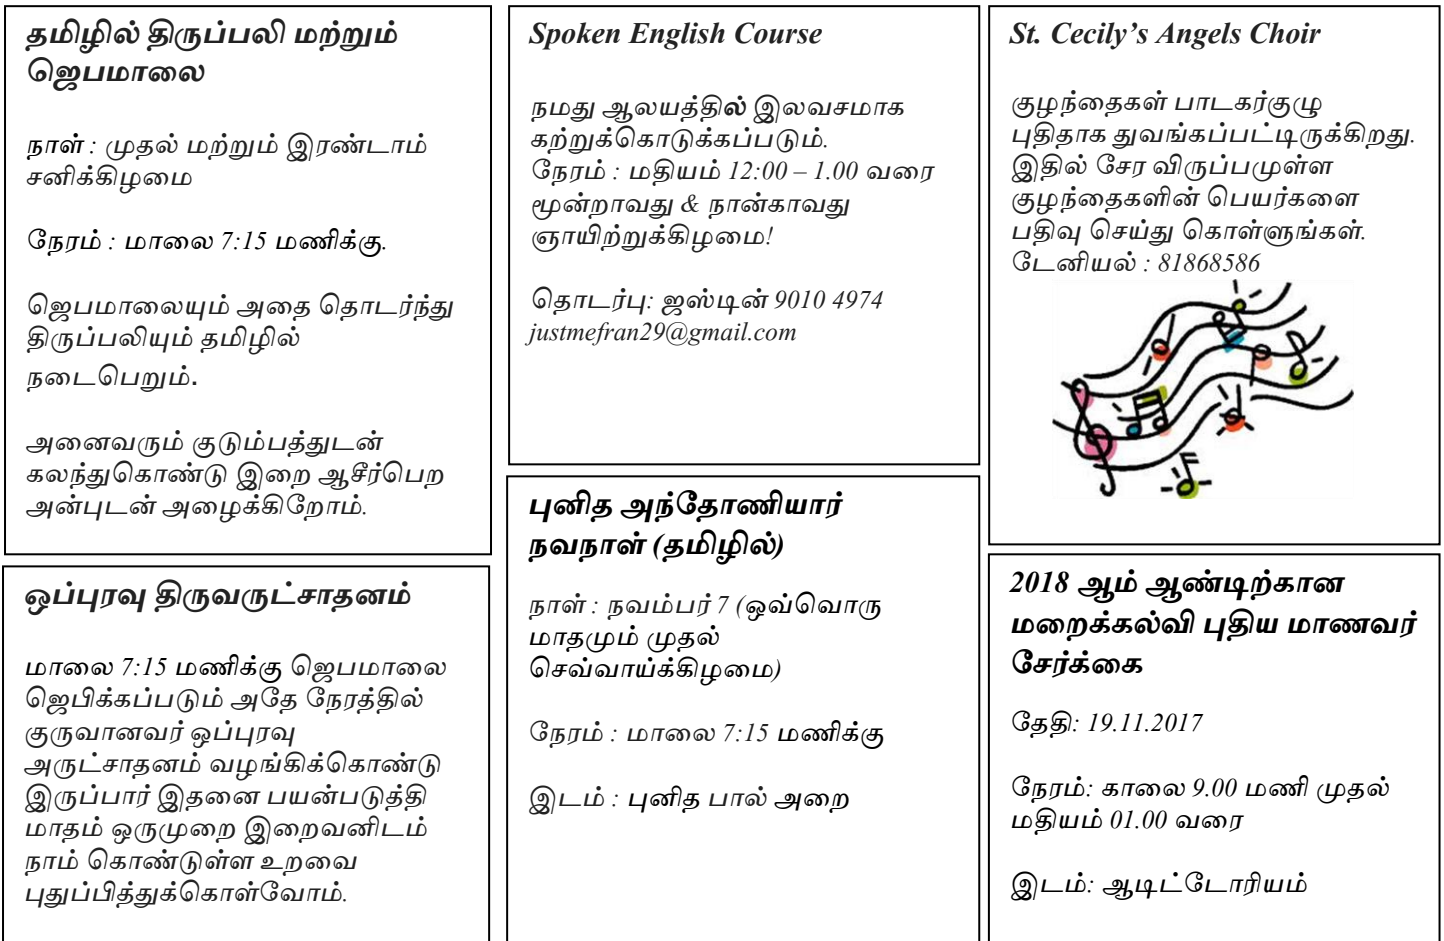 தமிழில் திருப்பலி மற்றும்
ஜெபமாலை
நாள் : முதல் மற்றும் இரண்டாம்
சனிக்கிழமை
நேரம் : மாலை 7:15 மணிக்கு.
ஜெபமாலையும் அதை தொடர்ந்து
திருப்பலியும் தமிழில்
நடைபெறும்.
அனைவரும் குடும்பத்துடன்
கலந்துகொண்டு இறை ஆசீர்பெற
அன்புடன் அழைக்கிறோம்.
ஒப்புரவு திருவருட்சாதனம்
மாலை 7:15 மணிக்கு ஜெபமாலை
ஜெபிக்கப்படும் அதே நேரத்தில்
குருவானவர் ஒப்புரவு
அருட்சாதனம் வழங்கிக்கொண்டு
இருப்பார் இதனை பயன்படுத்தி
மாதம் ஒருமுறை இறைவனிடம்
நாம் கொண்டுள்ள உறவை
புதுப்பித்துக்கொள்வோம்.
Spoken English Course
நமது ஆலயத்தில் இலவசமாக
கற்றுக்கொடுக்கப்படும்.
நேரம் : மதியம் 12:00 – 1.00 வரை
மூன்றாவது & நான்காவது
ஞாயிற்றுக்கிழமை!
தொடர்பு: ஜஸ்டின் 9010 4974
justmefran29@gmail.com
புனித அந்தோணியார்
நவநாள் (தமிழில்)
நாள் : நவம்பர் 7 (ஒவ்வொரு
மாதமும் முதல்
செவ்வாய்க்கிழமை)
நேரம் : மாலை 7:15 மணிக்கு
இடம் : புனித பால் அறை
St. Cecily’s Angels Choir
குழந்தைகள் பாடகர்குழு
புதிதாக துவங்கப்பட்டிருக்கிறது.
இதில் சேர விருப்பமுள்ள
குழந்தைகளின் பெயர்களை
பதிவு செய்து கொள்ளுங்கள்.
டேனியல் : 81868586
2018 ஆம் ஆண்டிற்கான
மறைக்கல்வி புதிய மாணவர்
சேர்க்கை
தேதி: 19.11.2017
நேரம்: காலை 9.00 மணி முதல்
மதியம் 01.00 வரை
இடம்: ஆடிட்டோரியம்